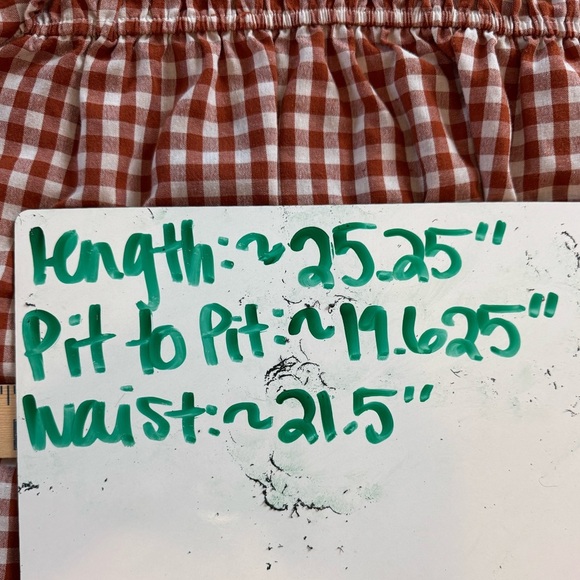 length: ~ 25.25"
Pit to Pit: ~ 19.625"
Waist: ~ 21.5"